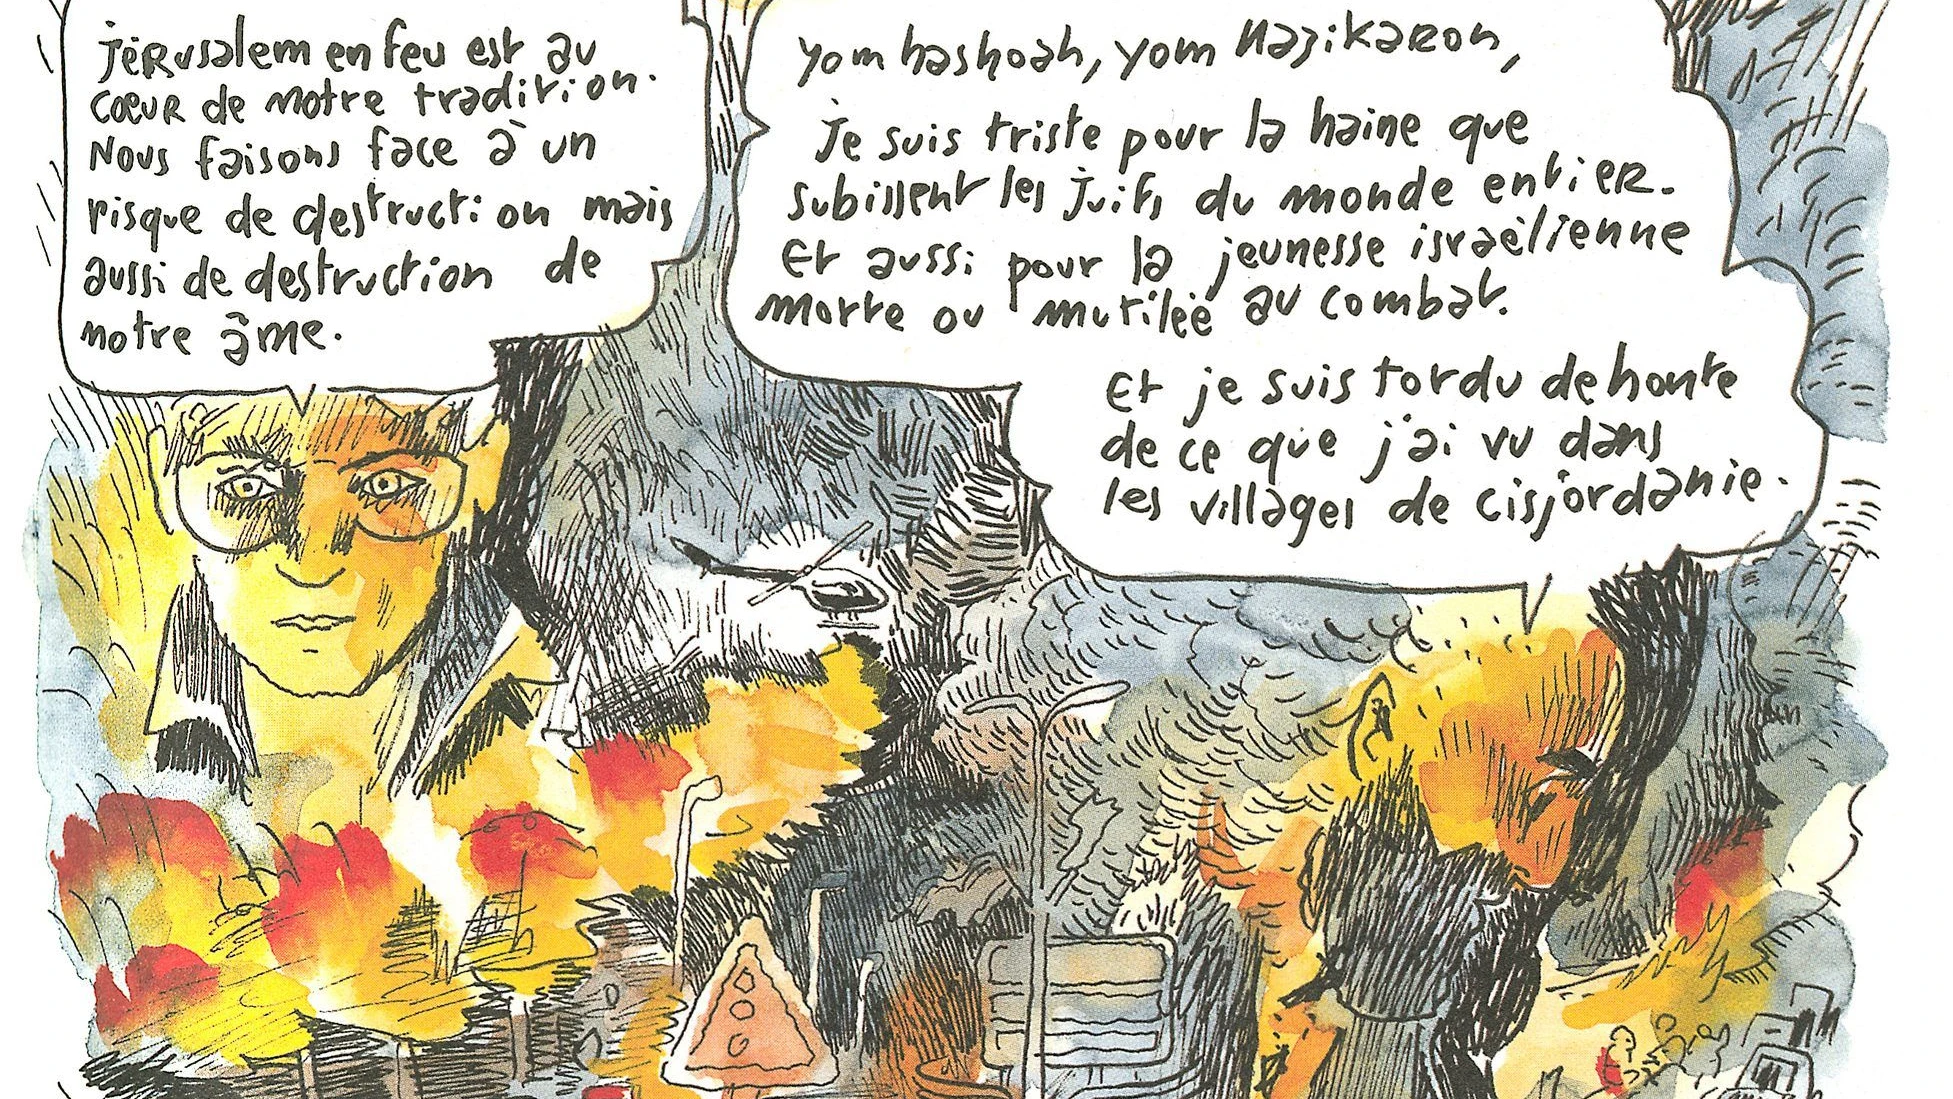 Jérusalem en feu est au
cœur de notre tradition.
Nous faisons face à un
risque de destruction mais
aussi de destruction de
notre âme.
Yom hashoah, yom Hazikaron,
Je suis triste pour la haine que
subissent les juifs du monde entier.
Et aussi pour la jeunesse israélienne
morte ou mutilée au combat.
Et je suis tordu de honte
de ce que j'ai vu dans
les villages de cisjordanie.